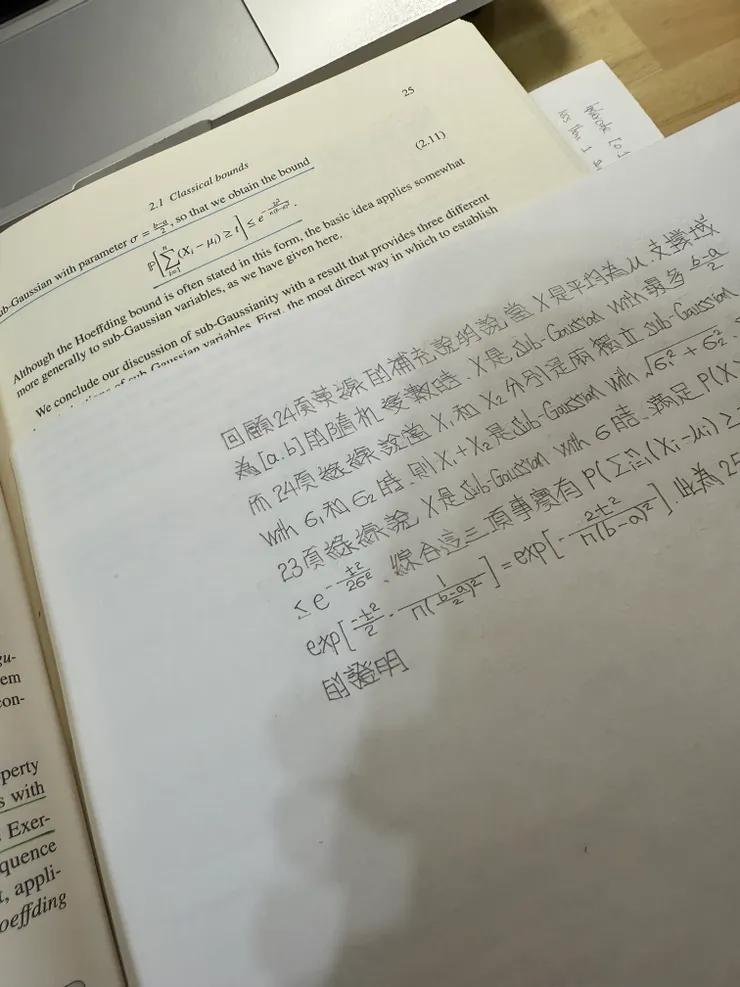 25
2.1 Classical bounds
ub-Gaussian with parameter σ = (b−a)/2, so that we obtain the bound
P[∑_{i=1}^{n}(X_i − μ_i) ≥ t] ≤ e^{−2t²/(n(b−a)²)}. (2.11)
Although the Hoeffding bound is often stated in this form, the basic idea applies somewhat
more generally to sub-Gaussian variables, as we have given here.
We conclude our discussion of sub-Gaussianity with a result that provides three different
of sub-Gaussian variables. First, the most direct way in which to establish
回顧24頁 的補充說明說當 X 是平均為 μ 支撐域
為[a.b]的隨機變數時. X是 Sub-Gaussian with 最多 (b-a)/2
而24頁 線說當 X₁ 和 X₂ 分別是兩獨立 Sub-Gaussian
with σ₁和 σ₂ 時. 則 X₁+X₂ 是 Sub-Gaussian with √(σ₁²+σ₂²).
23頁 線說 X 是 Sub-Gaussian with σ 時. 滿足 P(X
≤ e^{-t²/2σ²}. 綜合這三項事實有 P(∑ⁿᵢ₌₁(Xᵢ-μᵢ) ≥
exp[-t²/2 · 1/(n((b-a)/2)²)] = exp[-2t²/(n(b-a)²)]. 此為25
的證明
gu-
em
con-
perty
s with
Exer-
quence
t, appli-
oeffding